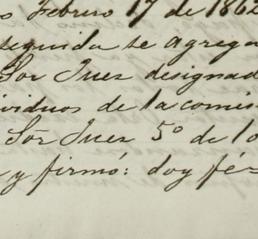 Febrero 17 de 1862
seguida se agrega
Sor Juez designad
ividuos de la comis
Sor Juez 5º de lo
y firmó: doy fé=